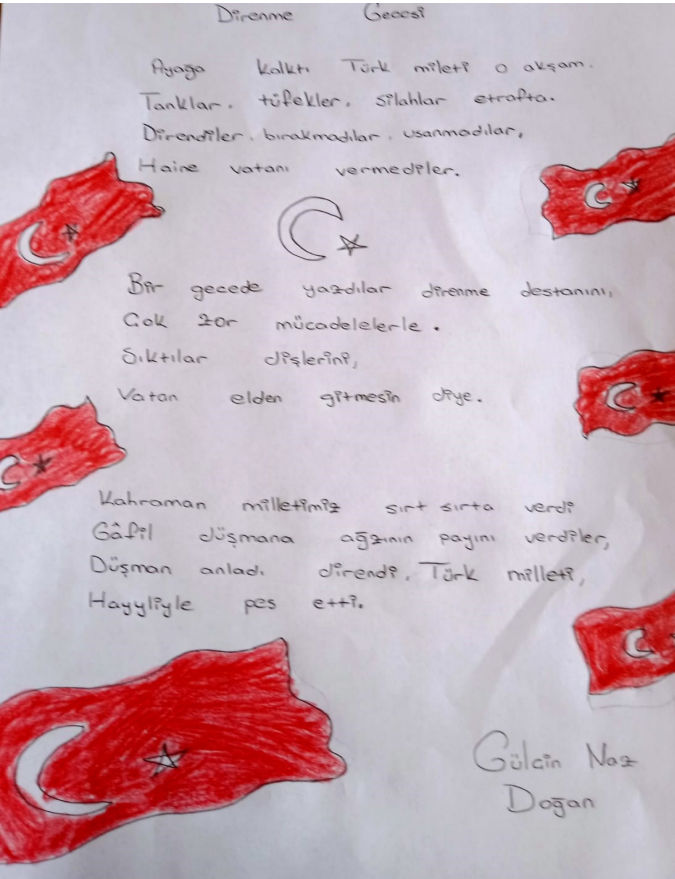 Direnme Gecesi
Ayağa kalktı Türk mileti o akşam.
Tanklar, tüfekler, silahlar etrafta.
Direndiler, bırakmadılar, usanmadılar,
Haine vatanı vermediler.
Bir gecede yazdılar direnme destanını,
Çok zor mücadelelerle.
Sıktılar dişlerini,
Vatan elden gitmesin diye.
Kahraman milletimiz sırt sırta verdi
Gâfil düşmana ağzının payını verdiler,
Düşman anladı, direndi, Türk milleti,
Hayyliyle pes etti.
Gülcin Naz
Doğan